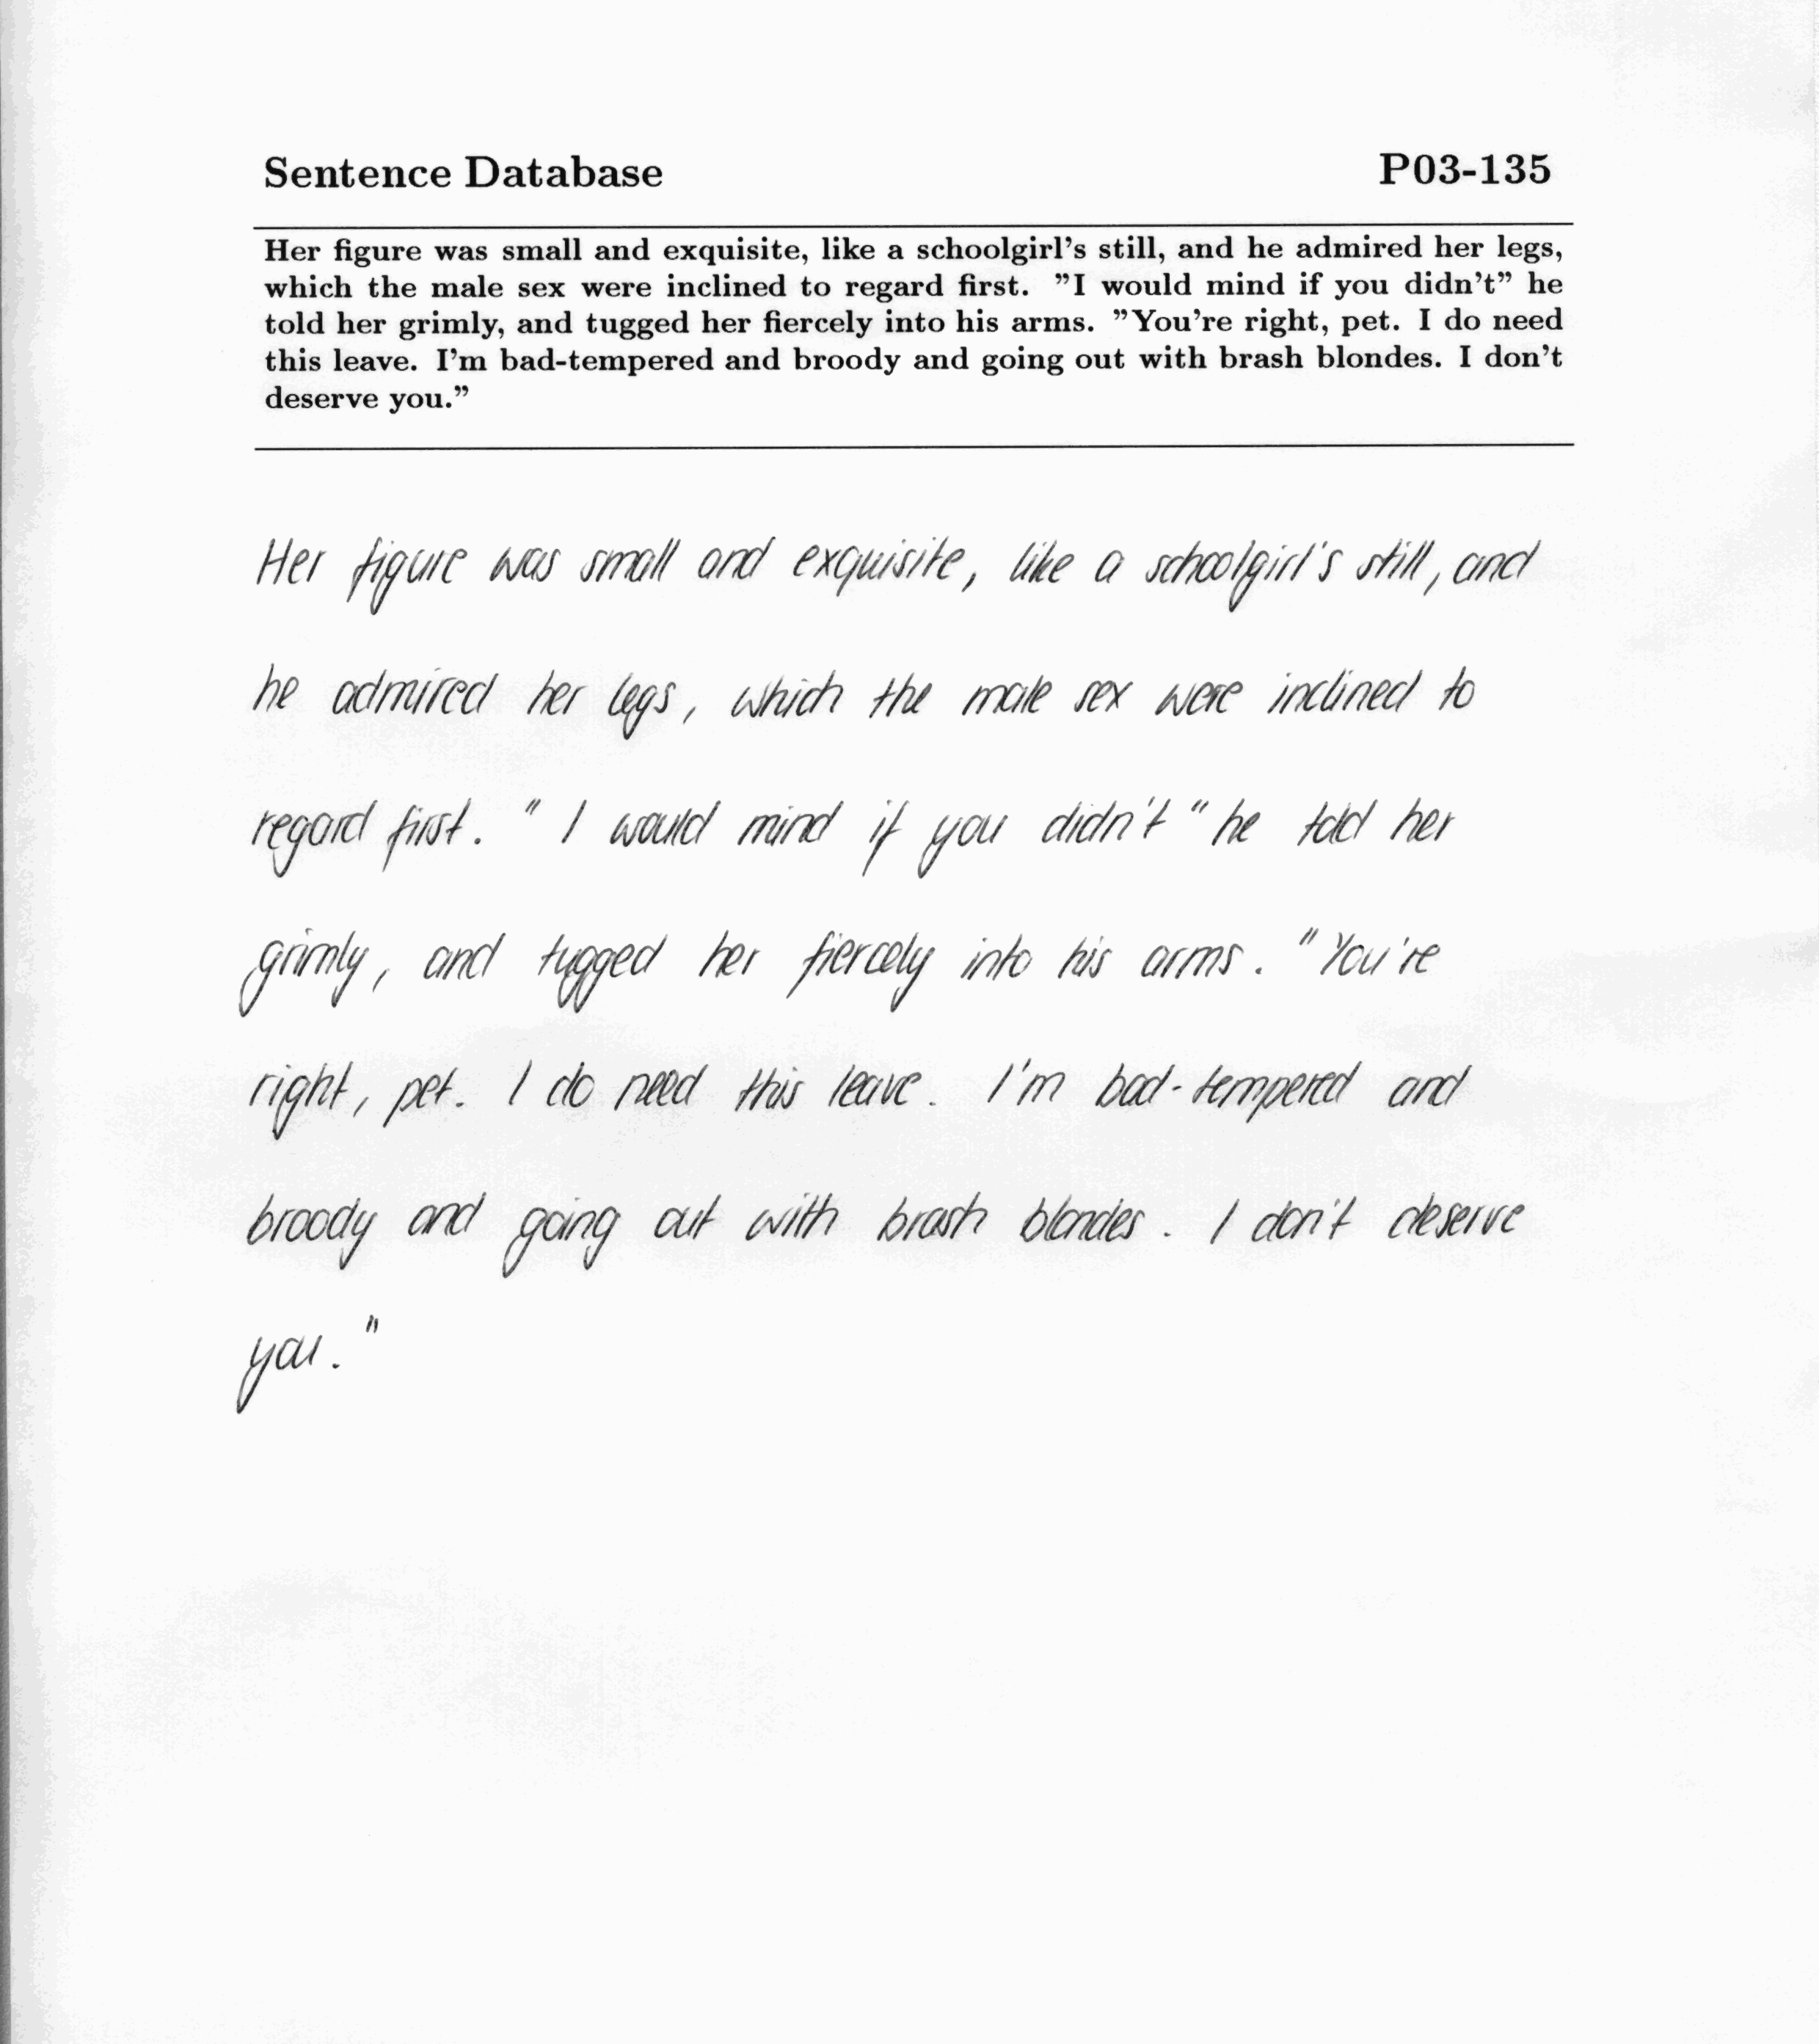 Sentence Database P03-135
Her figure was small and exquisite, like a schoolgirl's still, and he admired her legs,
which the male sex were inclined to regard first. "I would mind if you didn't" he
told her grimly, and tugged her fiercely into his arms. "You're right, pet. I do need
this leave. I'm bad-tempered and broody and going out with brash blondes. I don't
deserve you."
Her figure was small and exquisite, like a schoolgirl's still, and
he admired her legs, which the male sex were inclined to
regard first. " I would mind if you didn't " he told her
grimly, and tugged her fiercely into his arms. " You're
right, pet. I do need this leave. I'm bad-tempered and
broody and going out with brash blondes. I don't deserve
you. "